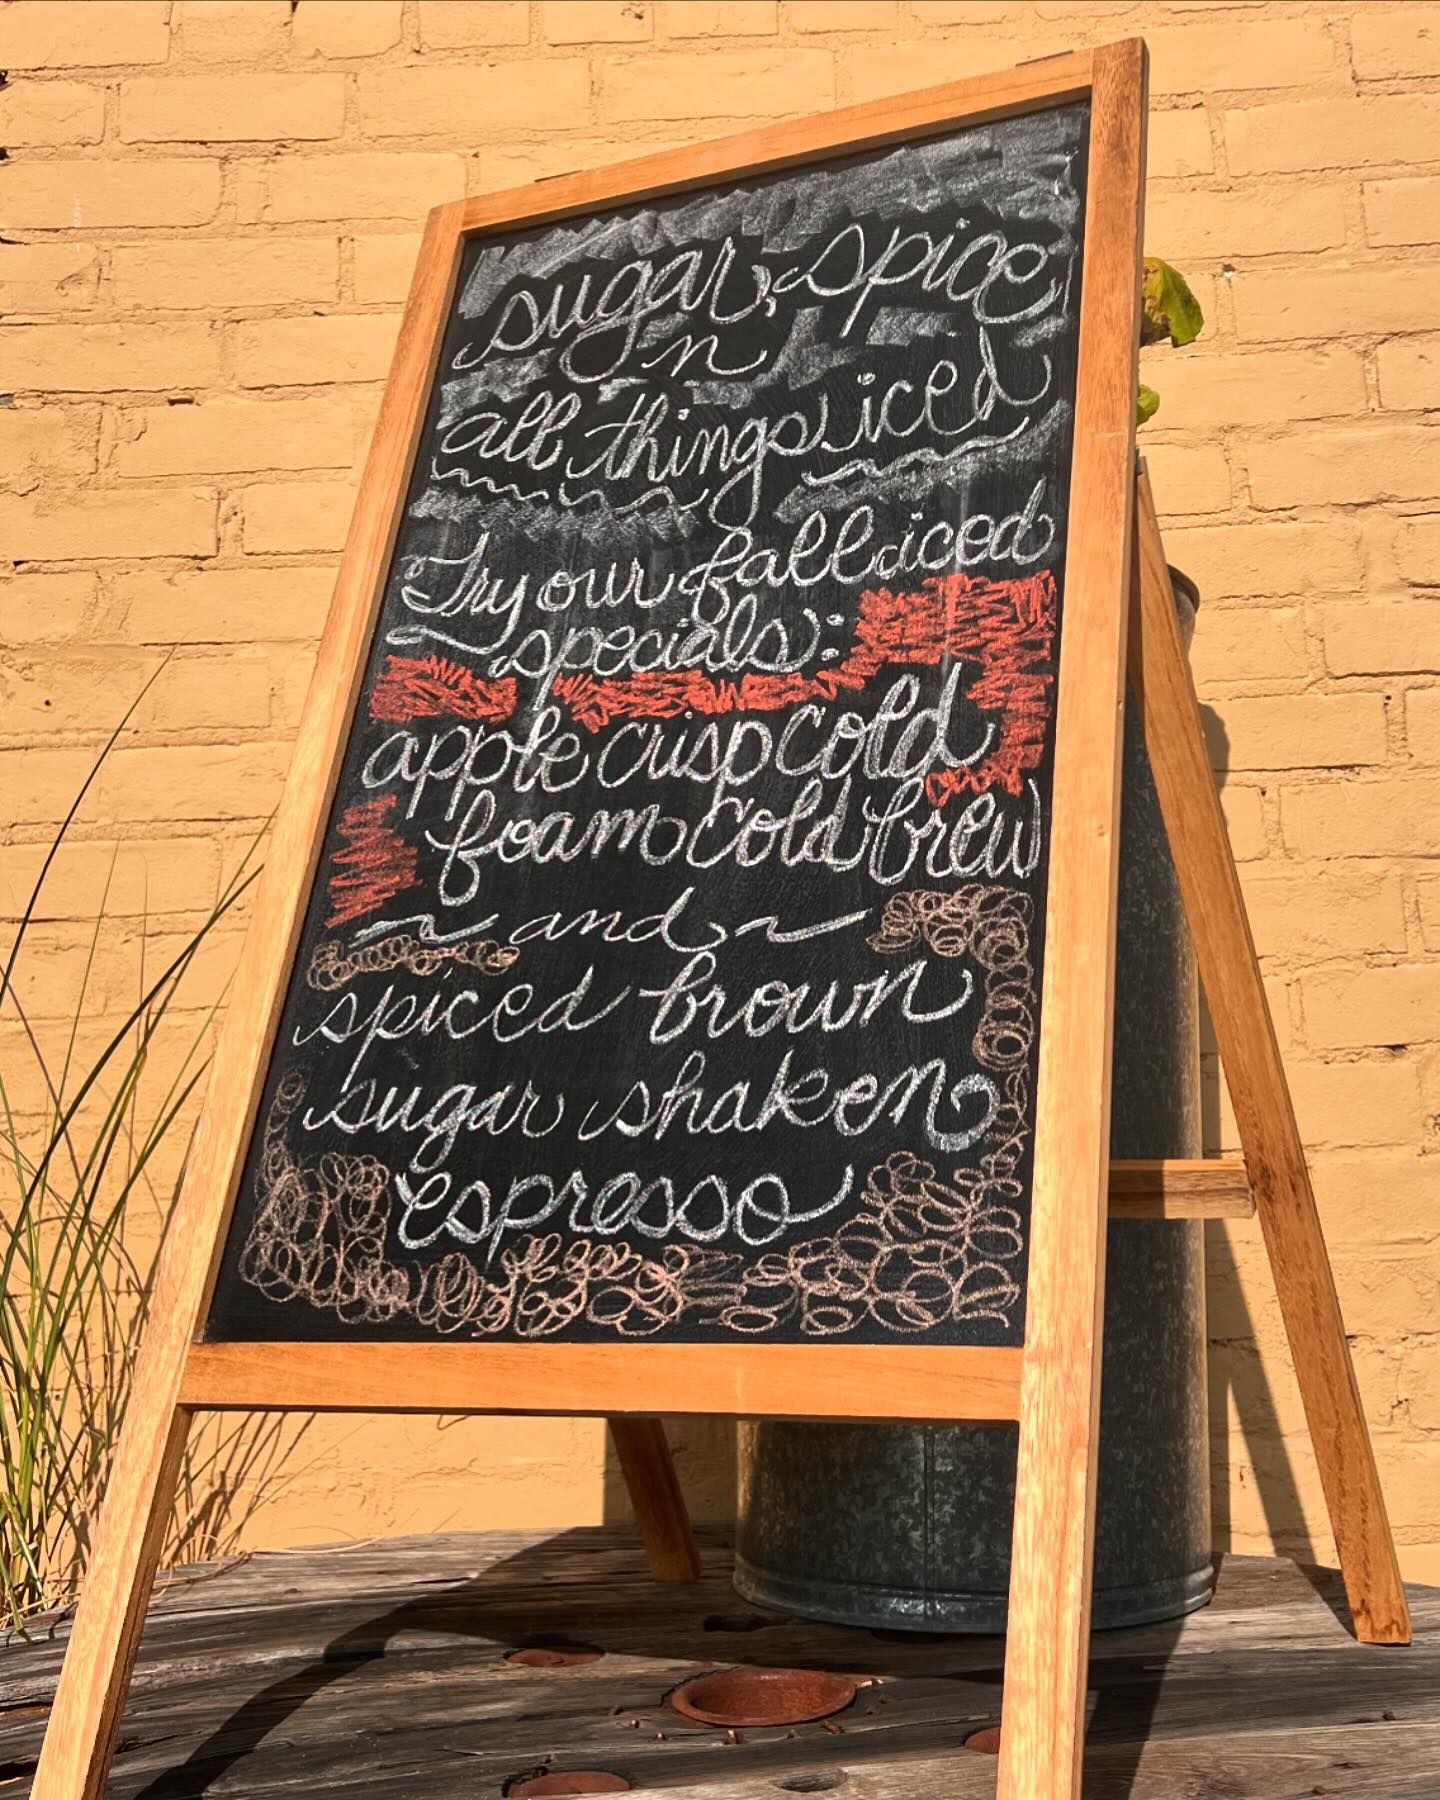 sugar, spice,
n
all things iced
Try our fall iced
specials:
apple crisp cold
foam cold brew
and
spiced brown
sugar shaken
espresso